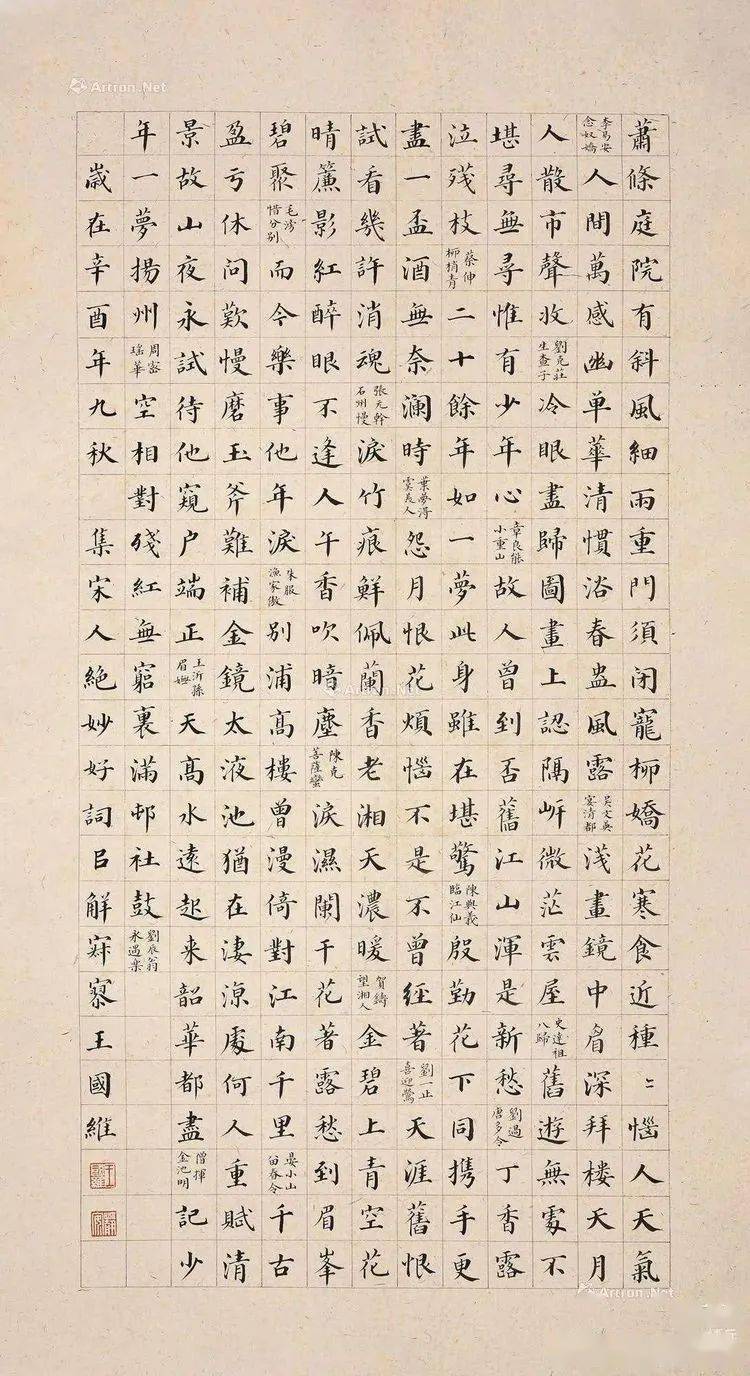 蕭條庭院有斜風細雨重門須閉寵柳嬌花寒食近種〻惱人天氣
李易安念奴嬌 人間萬感幽單華清慣浴春盎風露 吳文英宴清都 淺畫鏡中眉深拜楼天月
人散市聲收 劉克莊生查子 冷眼盡歸圖畫上認隔岍微茫雲屋 史達祖八歸 舊遊無處不
堪尋無尋惟有少年心 章良能小重山 故人曾到否舊江山渾是新愁 劉過唐多令 丁香露
泣殘枝 蔡伸柳梢青 二十餘年如一夢此身雖在堪驚 陳與義臨江仙 殷勤花下同携手更
盡一盃酒無奈瀾時 葉夢得虞美人 怨月恨花煩惱不是不曾經著 劉一止喜遷鶯 天涯舊恨
試看幾許消魂 張元幹石州慢 淚竹痕鮮佩蘭香老湘天濃暖 賀鑄望湘人 金碧上青空花
晴簾影紅醉眼不逢人午香吹暗塵 陳克菩薩蠻 淚濕闌干花著露愁到眉峯
碧聚 毛滂惜分別 而今樂事他年淚 朱服漁家傲 別浦高樓曾漫倚對江南千里 晏小山留春令 千古
盈亏休問歎慢磨玉斧難補金鏡太液池猶在淒涼處何人重賦清
景故山夜永試待他窺户端正 王沂孫眉嫵 天高水遠起来韶華都盡 僧揮金池明 記少
年一夢揚州 周密瑤華 空相對殘紅無窮裏滿邨社鼓 劉辰翁永遇樂
歲在辛酉年九秋 集宋人絕妙好詞㠯解寂寥王國維
Artron.Net
Artron.Net
Artron.Net